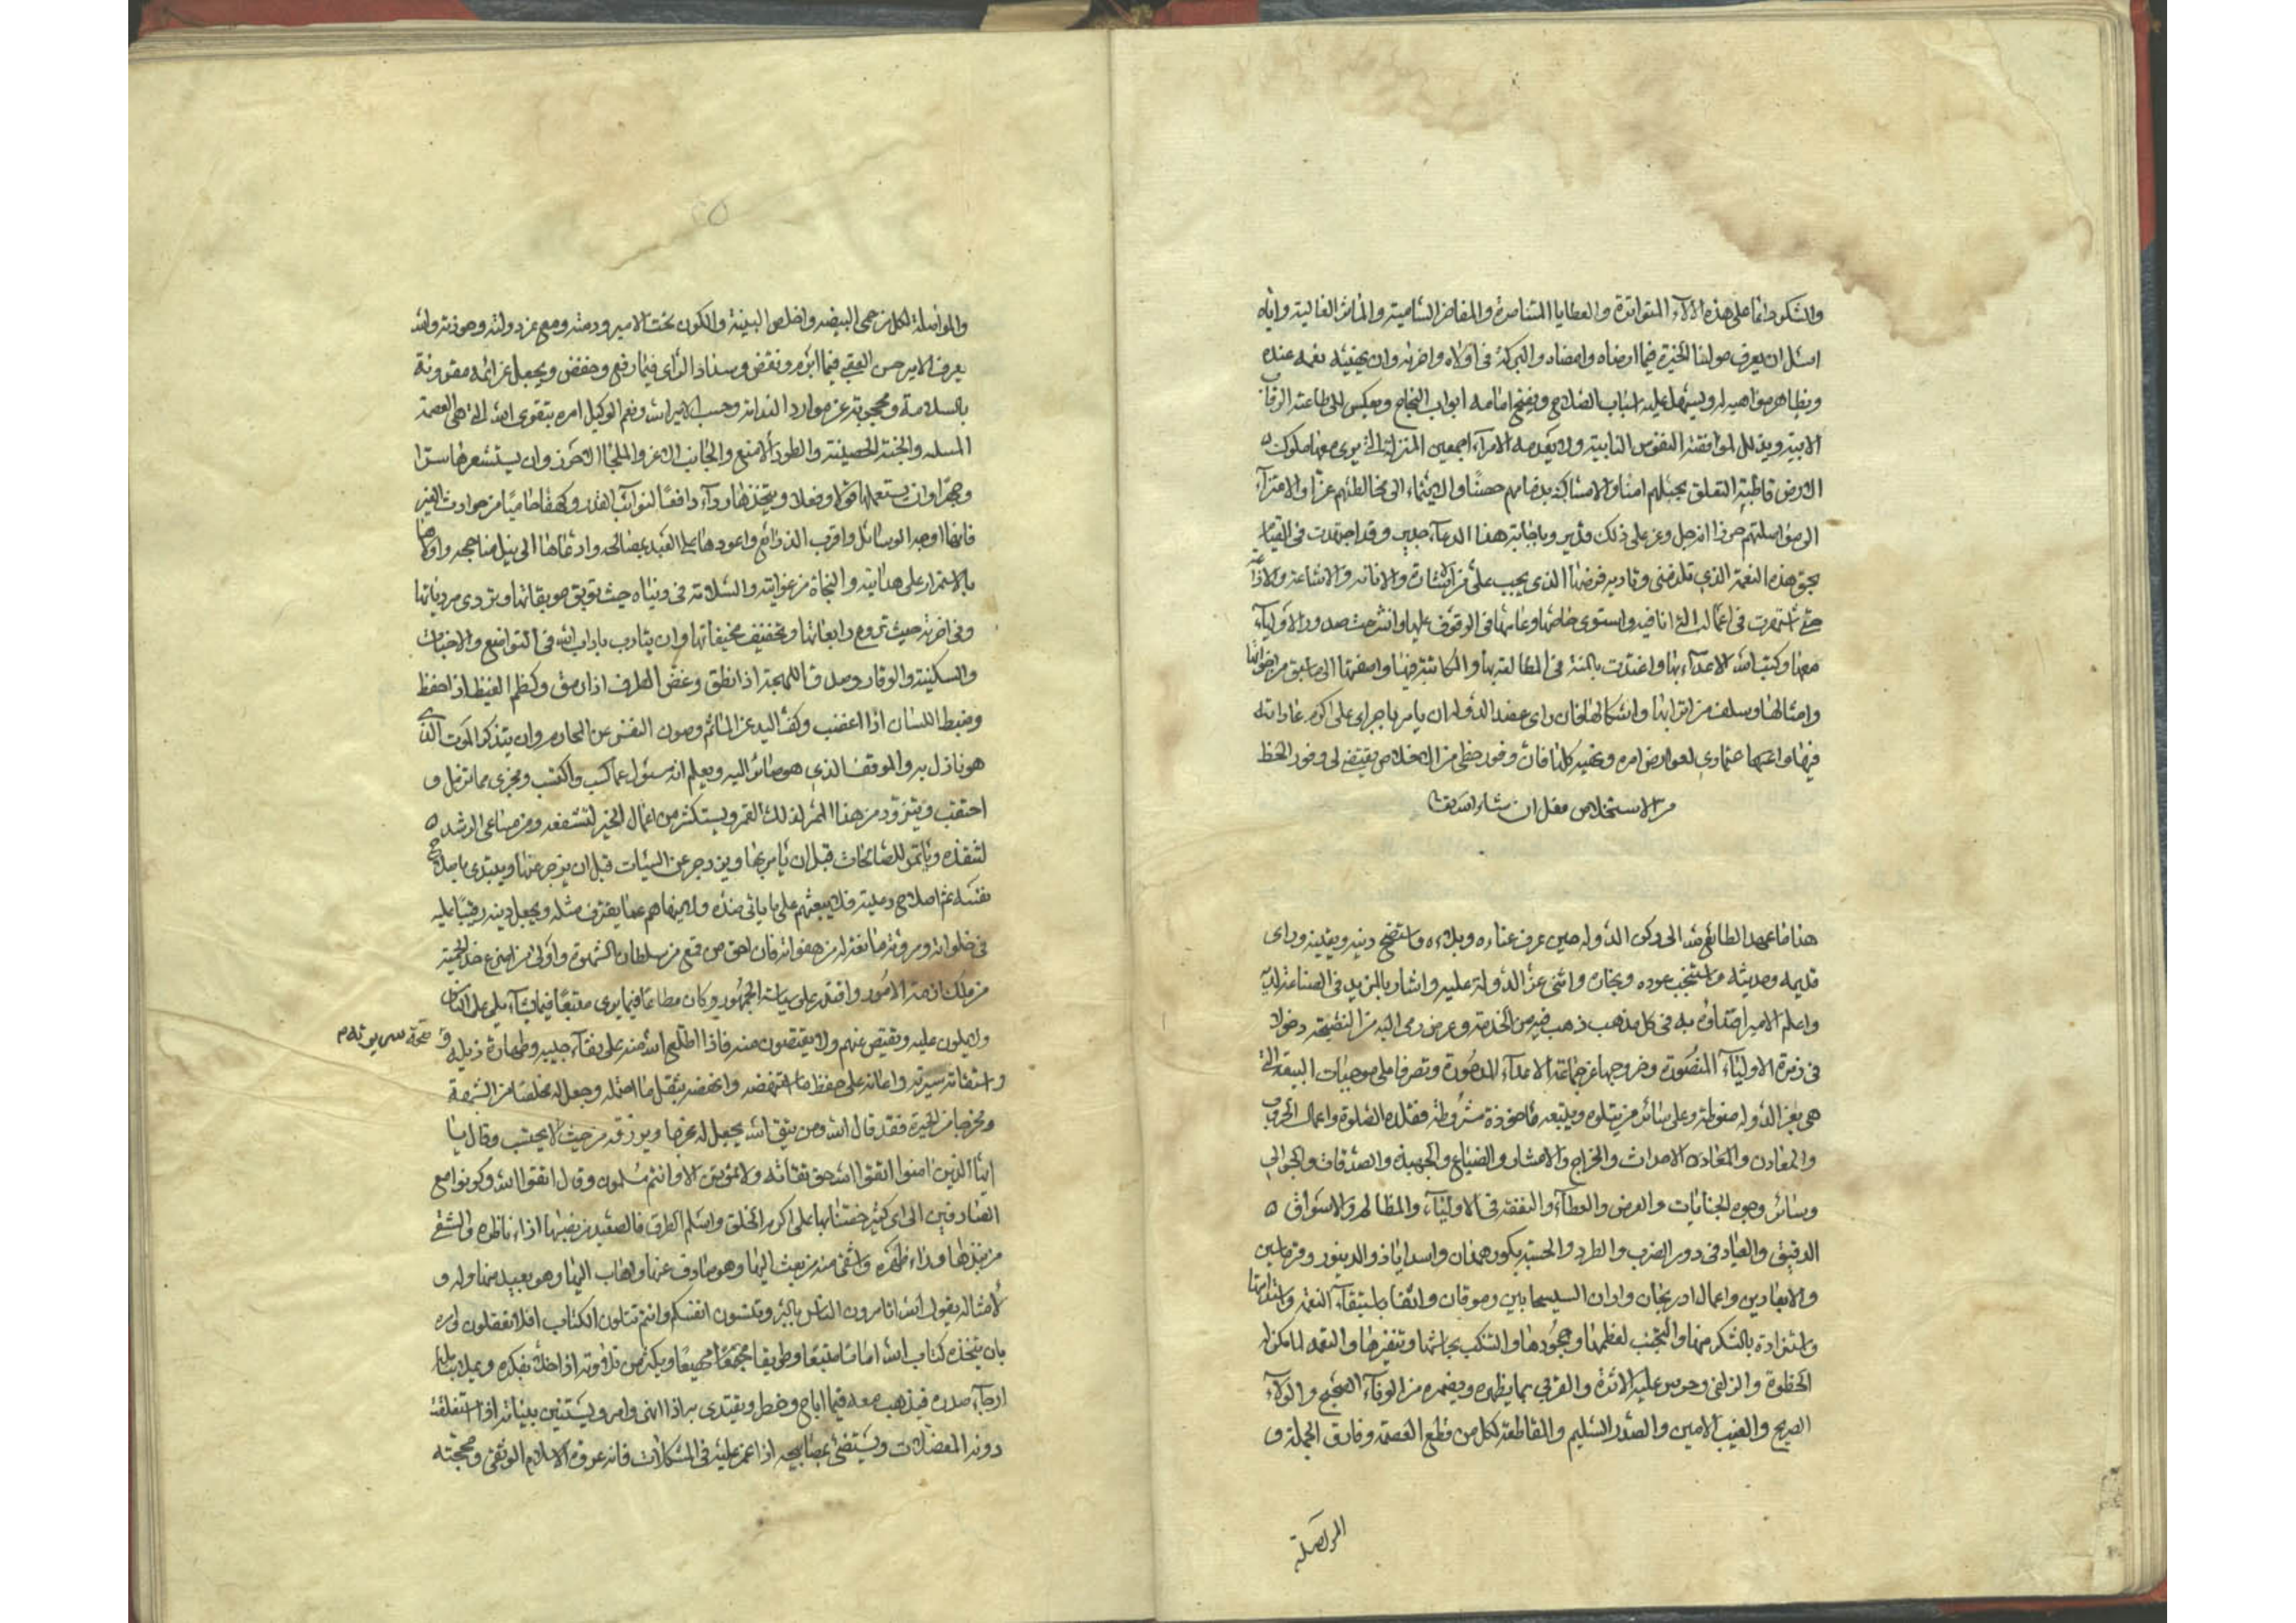 والشكر دائما على هذه الآلاء المتواترة والعطايا المتناصرة والمفاخر السامية والمآثر العالية واياه
اسئل ان يعرف مولنا الخيرة فيما ارضاه وامضاه والبركة في اولاه واخراه وان يهنيه نعمه عنده
ويظاهر مواهبه له ويسهل عليه اسباب الصلاح ويفتح امامه ابواب النجاح ويعكس الى طاعته الرقاب
الابية ويذلل لموافقته النفوس النابية ولا يعدمه الامراء اجمعين المنزلة التي يرى معها ملوك
الارض قاطبة التعلق بحبلهم امنا والامساك بذمامهم حصنا والانتماء الى مخالطتهم عزا والاعتزاء
الى مواصلتهم حرزا انه جل وعز على ذلك قدير وباجابة هذا الدعاء جدير وقد اجتهدت في القيام
بحق هذه النعمة الذي تلزمني وتادية فرضها الذي يجب على من الاشادة والابانة والاشاعة والاذاعة
حتى اشتهرت في اعمالك التي انا فيه واستوى خاصها وعامها في الوقوف عليها وانشرحت صدور الاولياء
معها وكبت الله الاعداء بها واعتددت بالمنة في المطالعة بها والمكاتبة فيها واضفتها الى ما سبق من اخواتها
وامثالها وسلف من اترابها واشكالها فان راى عضد الدولة ان يامر باجراى على اكرم عاداته
فيها واعتمادي لعوارض امره ونهيه كلها فان وفور حظى من الاخلاص يقتضي لي وفور الحظ
من الاستخلاص فعل ان شاء الله تعالى
هذا ما عهد الطائع لله الى ركن الدولة حين عرف غناءه وبلاءه واستصح دينه ويقينه وراى
قديمه وحديثه واستنجب عوده ونجاره واثنى عز الدولة عليه واشار بالمزيد في الصنيعة اليه
واعلم الامير اقتداؤه به في كل مذهب ذهب فيه من الخدمة وغرض رمى اليه من النصيحة دخولا
في زمرة الاولياء المنصورة وخروجا عن جماعة الاعداء المدحورة وتصرفا على موجبات البيعة التي
هي بعز الدولة منوطة وعلى سائر من يتلوه ويتبعه ماخوذة مشروطة فقلده الصلوة واعمال الحرب
والمعادن والمعاون الاحداث والخراج والاعشار والضياع والجهبذة والصدقات والجوالي
وسائر وجوه الجبايات والعرض والعطاء والنفقة في الاولياء والمظالم والاسواق
الدقيق والعيار في دور الضرب والطرز والحسبة بكور همذان واسداباذ والدينور وقرماسين
والايغارين واعمال اذربيجان واران السيسجانين وموقان واثقا باستبقاء النعمة واستدامتها
والاستزادة بالشكر منها والتجنب لغمطها وجحودها والتنكب بحاشها وتنفيرها والتعمد لما مكن له
الحظوة والزلفى وحرس عليه الاثرة والقربى بما يظهره ويضمره من الوفاء الصحيح والولاء
الصريح والغيب الامين والصدر السليم والمقاطعة لكل من قطع العصمة وفارق الجملة و
المواصلة
والمواصلة لكل من حمى البيضة واخلص النية والكون تحت الامير وذمته ومع عز دولته وحوزته والله
يعرف الامير حسن العقبى فيما ابرم ونقض وسداد الراى فيما رفع وخفض ويجعل عزائمه مقرونة
بالسلامة ومحجوبة عن موارد الندامة وحسب الامير الله ونعم الوكيل امره بتقوى الله التي هي العصمة
المسلمة والجنة الحصينة والطود الامنع والجانب الاعز والملجا الاحرز وان يستشعرها سرا
وجهرا وان يستعملها قولا وفعلا ويتخذها رداء دافعا لنوائب القدر وكهفا حاميا من حوادث الغير
فانها اوجه الوسائل واقرب الذرائع واعودها على العبد بمصالحه وادعاها الى نيل مناجحه واولاها
بالاستمرار على هدايته والنجاة من غوايته والسلامة في دنياه حيث توبق موبقاتها وتردى مردياتها
وفي اخرته حيث تروع رايعاتها وتخيف مخيفاتها وان يتادب باداب الله في التواضع والاخبات
والسكينة والوقار وصدق اللهجة اذا نطق وغض الطرف اذا رمق وكظم الغيظ اذا احفظ
وضبط اللسان اذا اغضب وكف اليد عن المآثم وصون النفس عن المحارم وان يتذكر الموت الذي
هو نازل به والموقف الذي هو صائر اليه ويعلم انه مسؤل عما كسب واكتسب ومجزى مما تزمل و
احتقب ويتزود من هذا الممر لذلك المقر ويستكثر من اعمال الخير لتشفعه ومن مساعى الرشد
لتنقذه وياتمر للصالحات قبل ان يامر بها وينزجر عن السيئات قبل ان يزجر عنها ويبتدى باصلاح
نفسه ثم اصلاح رعيته فلا يبعثهم على ما ياتى ضده ولا ينهاهم عما يقترف مثله ويجعل دينه رقيبا عليه
في خلواته ومروته مانعة له من هفواته فان احق من قمع من سلطان بالشهوة واولى من اضرع خد الحمية
من ملك ازمة الامور واقتدر على سياسة الجمهور وكان مطاعا فيما يرى متبعا فيما يشاء يلى على الناس
ولا يلون عليه ويقتص عنهم ولا يقتصون منه فاذا اطلع الله منه على نقاء جيبه وطهارة ذيله و
صحة سريرته م
واستقامة سيرته واعانه على حفظ ما استحفظه وانهضه بثقل ما احتمله وجعل له مخلصا من الشبهة
ومخرجا من الحيرة فقد قال الله ومن يتق الله يجعل له مخرجا ويرزقه من حيث لا يحتسب وقال يا
ايها الذين امنوا اتقوا الله حق تقاته ولا تموتن الا وانتم مسلمون وقال اتقوا الله وكونوا مع
الصادقين الى اى كثيرة حضنا بها على اكرم الخلق واسلم الطرق فالسعيد من نصبها ازاء ناظره والشقى
من نبذها وراء ظهره واشقى منه من بعث اليها وهو صادف عنها واهاب اليها وهو بعيد منها وله و
لامثاله يقول الله اتامرون الناس بالبر وتنسون انفسكم وانتم تتلون الكتاب افلا تعقلون امره
بان يتخذ كتاب الله اماما متبعا وطريقا مهيعا ويكثر من تلاوته اذا خلا بفكره ويملا بتامله
ارجاء صدره فيذهب معه فيما اباح وحظر ويقتدى به اذا نهى وامر ويستبين ببيانه اذا استغلقت
دونه المعضلات ويستضئ بمصابيحه اذا غم عليه في المشكلات فانه عروة الاسلام الوثقى ومحجته